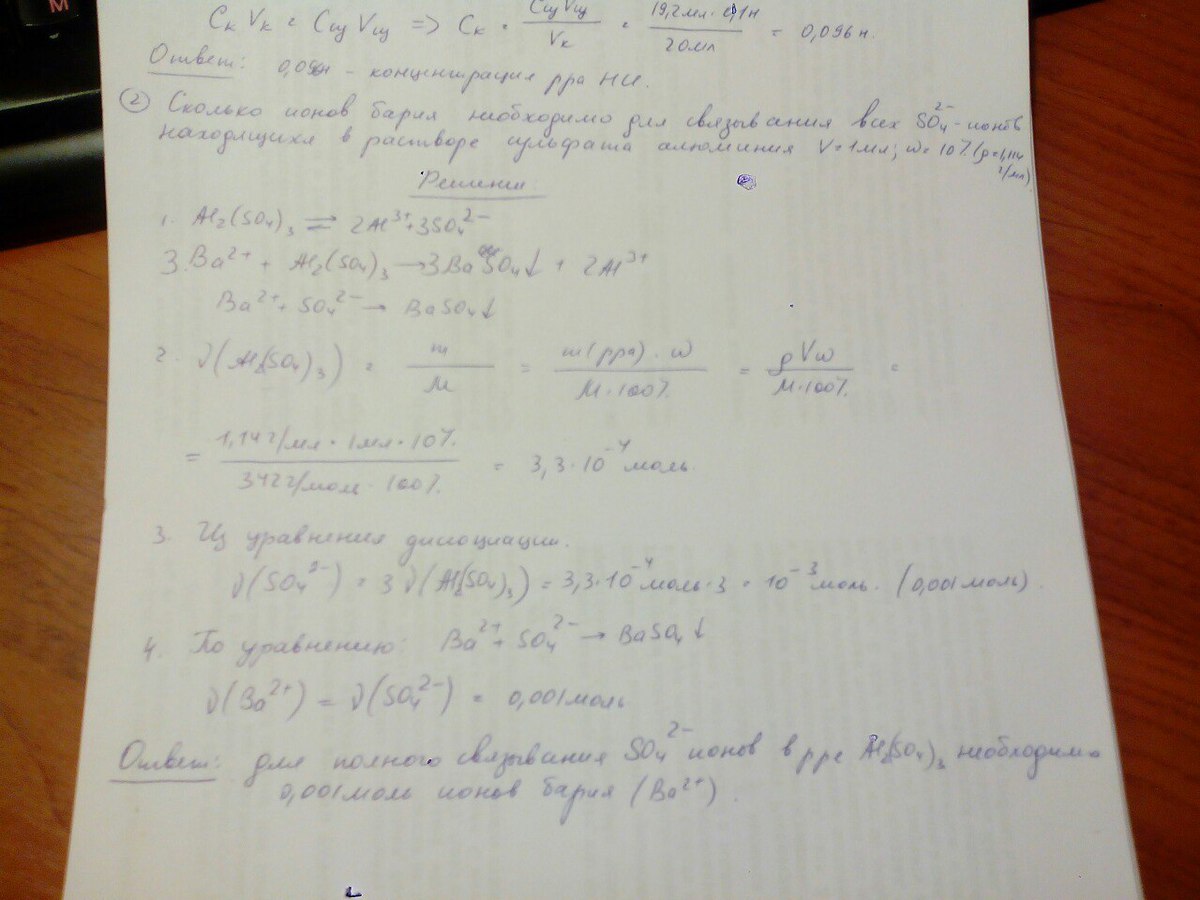 Cк Vк = Cщ Vщ => Cк = Cщ Vщ / Vк = 19,2мл · 0,1н / 20мл = 0,096 н.
Ответ: 0,096н – концентрация рра HCl.
② Сколько ионов бария необходимо для связывания всех SO₄²⁻ - ионов
находящихся в растворе сульфата алюминия V = 1мл; ω = 10% (ρ = 1,114
г/мл)
Решение.
1. Al₂(SO₄)₃ ⇌ 2Al³⁺ + 3SO₄²⁻
3Ba²⁺ + Al₂(SO₄)₃ → 3BaSO₄↓ + 2Al³⁺
Ba²⁺ + SO₄²⁻ → BaSO₄↓
2. ν(Al₂(SO₄)₃) = m / M = m(рра) · ω / M · 100% = ρVω / M · 100% =
= 1,14г/мл · 1мл · 10% / 342г/моль · 100% = 3,3 · 10⁻⁴ моль.
3. Из уравнения дисоциации.
ν(SO₄²⁻) = 3 ν(Al₂(SO₄)₃) = 3,3 · 10⁻⁴ моль · 3 = 10⁻³ моль. (0,001 моль).
4. По уравнению: Ba²⁺ + SO₄²⁻ → BaSO₄↓
ν(Ba²⁺) = ν(SO₄²⁻) = 0,001 моль
Ответ: для полного связывания SO₄²⁻ ионов в рре Al₂(SO₄)₃ необходимо
0,001 моль ионов бария (Ba²⁺).